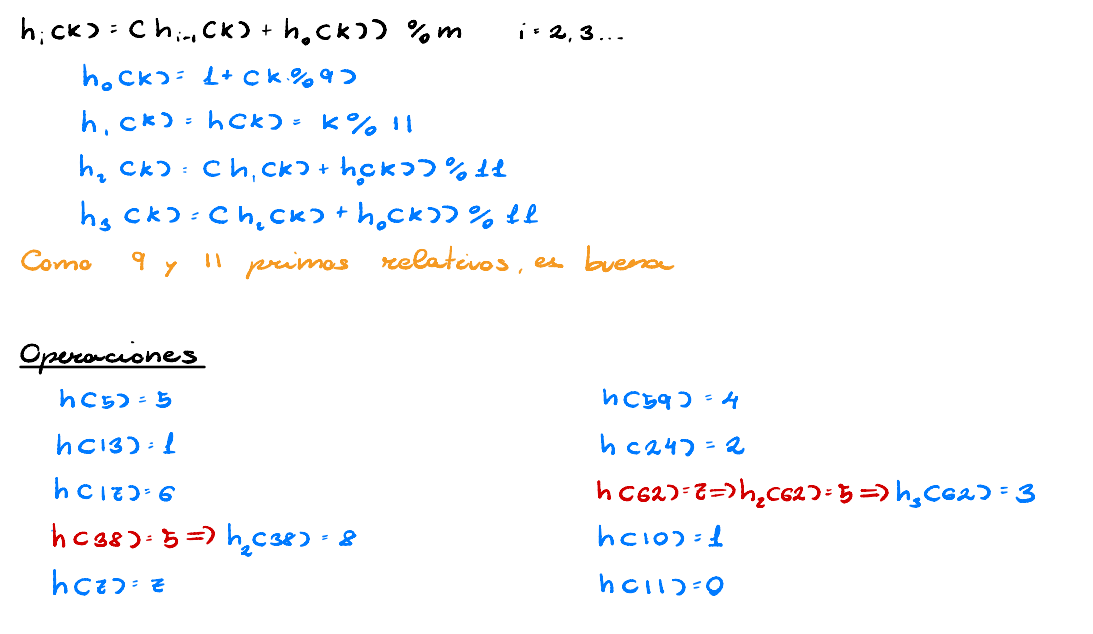 hᵢ(k) = (hᵢ₋₁(k) + h₀(k)) % m i = 2, 3...
h₀(k) = 1 + (k % 9)
h₁(k) = h(k) = k % 11
h₂(k) = (h₁(k) + h₀(k)) % 11
h₃(k) = (h₂(k) + h₀(k)) % 11
Como 9 y 11 primos relativos, es buena
Operaciones
h(5) = 5
h(13) = 1
h(17) = 6
h(38) = 5 => h₂(38) = 8
h(7) = 7
h(59) = 4
h(24) = 2
h(62) = 7 => h₂(62) = 5 => h₃(62) = 3
h(10) = 1
h(11) = 0